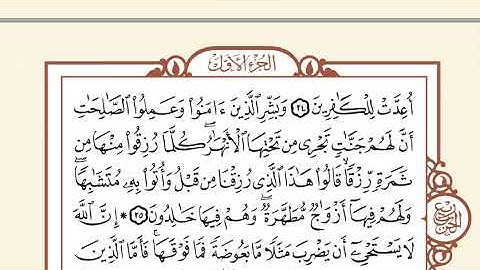 الجزء الأول
أُعِدَّتْ لِلْكَٰفِرِينَ ٢٤ وَبَشِّرِ ٱلَّذِينَ ءَامَنُوا۟ وَعَمِلُوا۟ ٱلصَّٰلِحَٰتِ
أَنَّ لَهُمْ جَنَّٰتٍ تَجْرِى مِن تَحْتِهَا ٱلْأَنْهَٰرُ ۖ كُلَّمَا رُزِقُوا۟ مِنْهَا مِن
ثَمَرَةٍ رِّزْقًا ۙ قَالُوا۟ هَٰذَا ٱلَّذِى رُزِقْنَا مِن قَبْلُ ۖ وَأُتُوا۟ بِهِۦ مُتَشَٰبِهًا ۖ
وَلَهُمْ فِيهَآ أَزْوَٰجٌ مُّطَهَّرَةٌ ۖ وَهُمْ فِيهَا خَٰلِدُونَ ٢٥ ۞ إِنَّ ٱللَّهَ
لَا يَسْتَحْىِۦٓ أَن يَضْرِبَ مَثَلًا مَّا بَعُوضَةً فَمَا فَوْقَهَا ۚ فَأَمَّا ٱلَّذِينَ